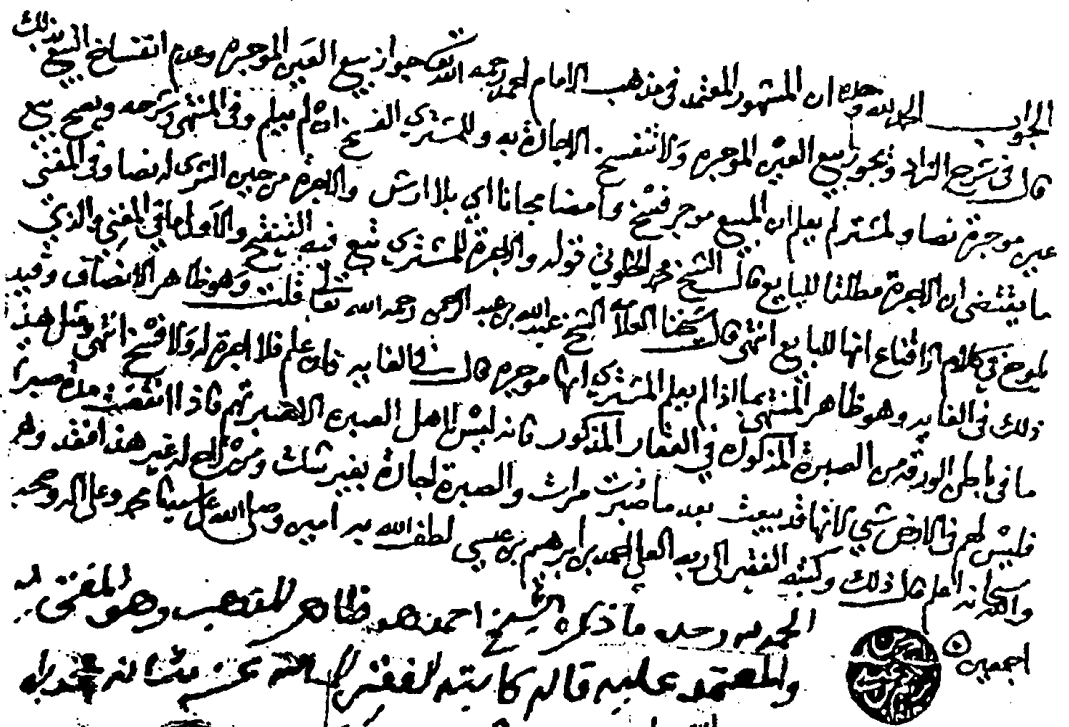 الجواب الحمد لله وحده ان المشهور المعتمد في مذهب الامام احمد رحمه الله تعالى جواز بيع العين الموجرة وعدم انفساخ البيع بذلك
قال في شرح الزاد ويجوز بيع العين الموجرة ولا تنفسخ الاجارة به وللمشتري الفسخ ان لم يعلم وفي المنتهى وشرحه ويصح بيع
عين موجرة نصا ولمشتر لم يعلم ان المبيع موجر فسخ وامضا مجانا اي بلا ارش والاجرة من حين الشرى له نصا وفي المغني
ما يقتضي ان الاجرة مطلقا للبايع قال الشيخ محمد الخلوتي قوله والاجرة للمشتري تبع فيه التنقيح والاول ما في المغني والذي
يلوح في كلام الاقناع انها للبايع انتهى قال شيخنا العلامة الشيخ عبد الله بن عبد الرحمن رحمه الله تعالى قلت وهو ظاهر الانصاف وقيد
ذلك في الغايه وهو ظاهر المنتهى بما اذا لم يعلم المشتري انها موجره قال في الغايه فان علم فلا اجرة له ولا فسخ انتهى ومثل هذا
ما في باطن الورقه من الصبرة المذكوره في العقار المذكور فانه ليس لاهل الصبره الا صبرتهم فاذا انقضت مدة صبرة
فليس لهم في الارض شي لانها قد بيعت بعد ما صبرت مرات والصبرة اجارة بغير شك ومن قال له غير هذا فقد وهم
والله سبحانه اعلم قال ذلك وكتبه الفقير الى ربه العلي احمد بن ابرهيم بن عيسى لطف الله به امين وصلى الله على سيدنا محمد وعلى اله وصحبه
اجمعين
الحمد لله وحده ما ذكره الشيخ احمد هو ظاهر المذهب وهو المفتى به
والمعتمد عليه قاله كاتبه الفقير